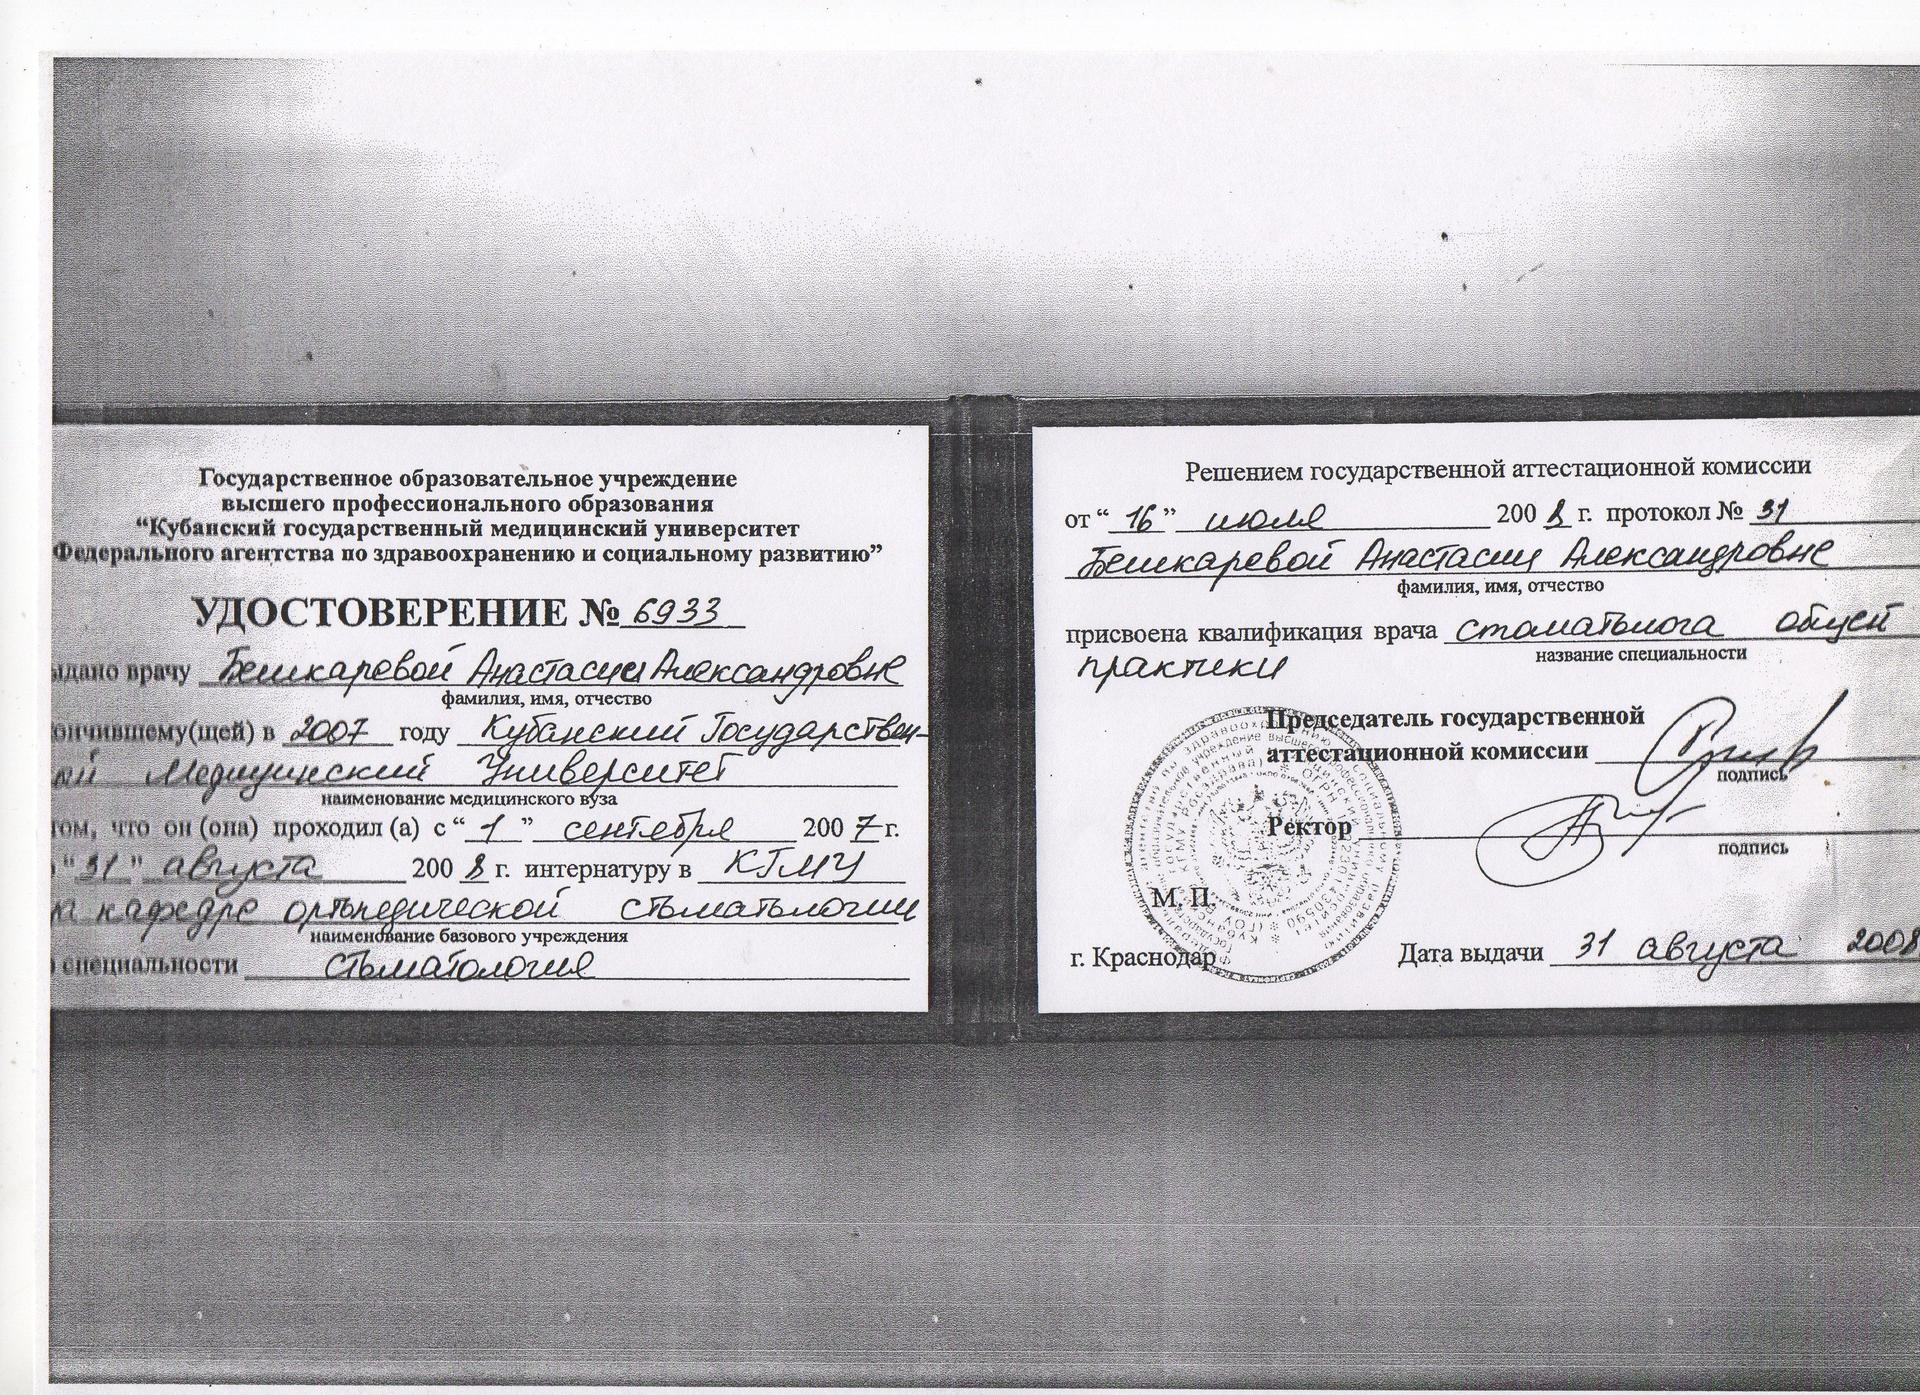 Государственное образовательное учреждение
высшего профессионального образования
“Кубанский государственный медицинский университет
Федерального агентства по здравоохранению и социальному развитию”
УДОСТОВЕРЕНИЕ № 6933
ыдано врачу Бешкаревой Анастасии Александровне
фамилия, имя, отчество
ончившему(щей) в 2007 году Кубанский Государствен-
ый Медицинский Университет
наименование медицинского вуза
том, что он (она) проходил (а) с “ 1 ” сентября 200 7 г.
“ 31 ” августа 200 8 г. интернатуру в КГМУ
на кафедре ортопедической стоматологии
наименование базового учреждения
о специальности стоматология
Решением государственной аттестационной комиссии
от “ 16 ” июля 200 8 г. протокол № 31
Бешкаревой Анастасии Александровне
фамилия, имя, отчество
присвоена квалификация врача стоматолога общей
название специальности
практики
Председатель государственной
аттестационной комиссии
подпись
Ректор
подпись
М. П.
г. Краснодар Дата выдачи 31 августа 2008